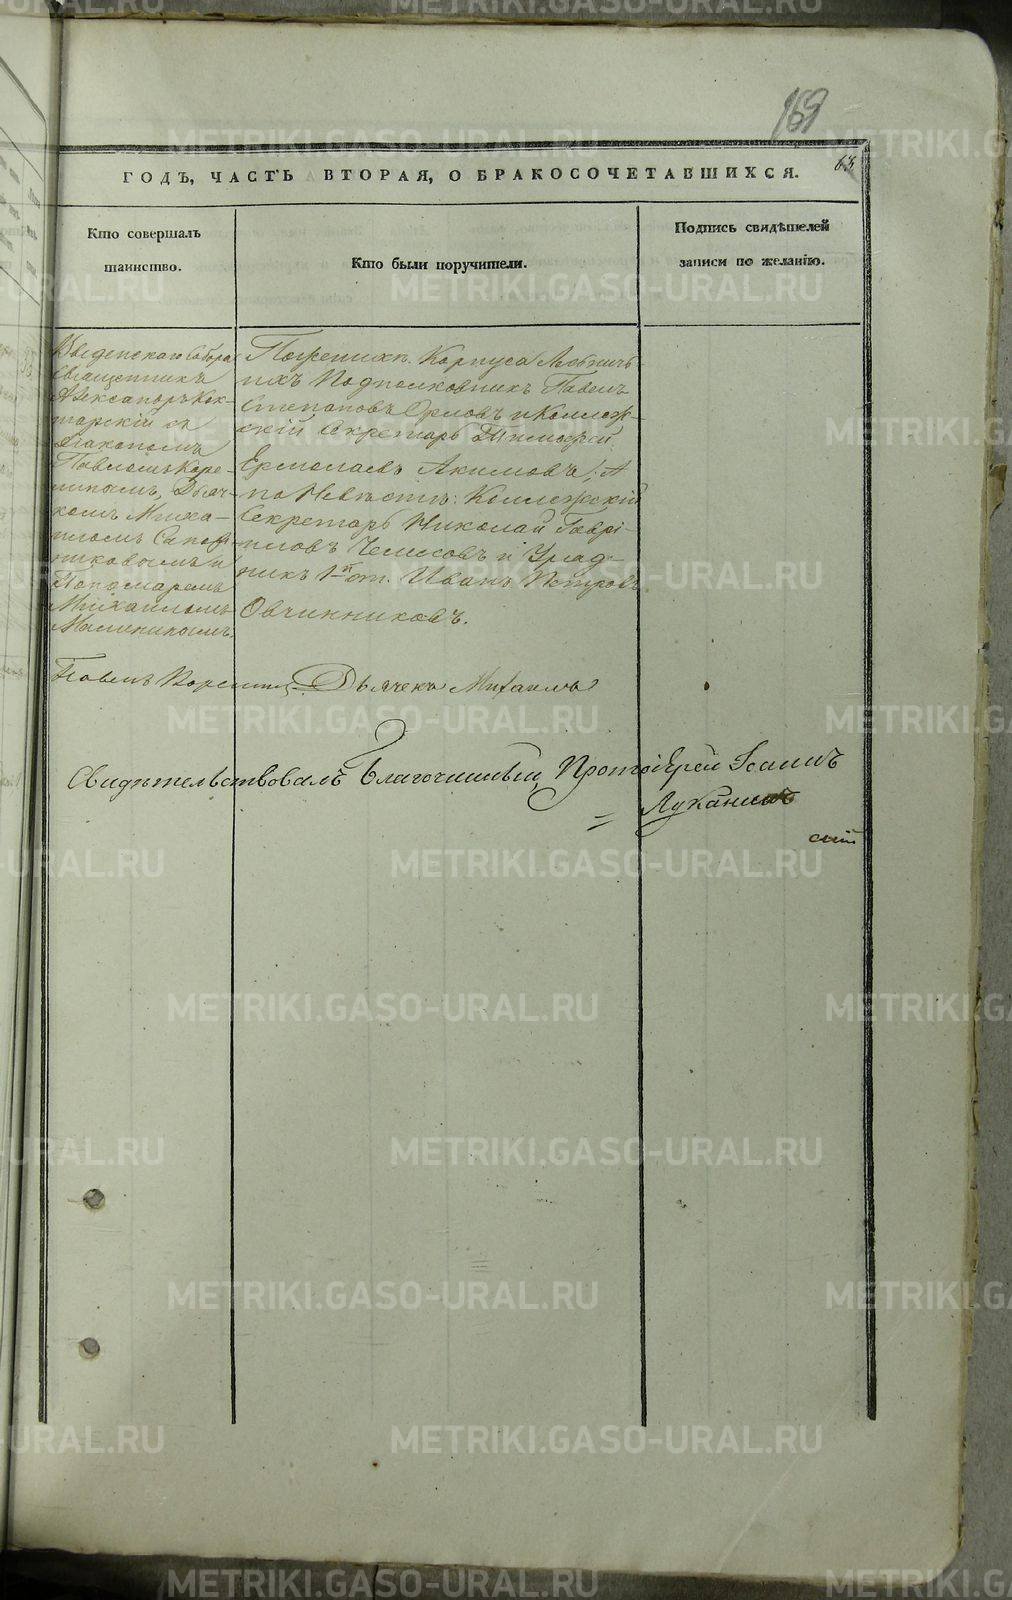 169
63
ГОДЪ, ЧАСТЬ ВТОРАЯ, О БРАКОСОЧЕТАВШИХСЯ.
Кто совершалъ
таинство.
Кто были поручители.
Подпись свидѣтелей
записи по желанію.
Введенскаго Собора
Священникъ
Александръ
тарскій съ
Діакономъ
Павломъ Коре-
пинымъ, Дьяч-
комъ Миха-
иломъ Сапож-
никовымъ и
Пономаремъ
Михаиломъ
Малининымъ.
По женихѣ Корпуса Лѣсничь
ихъ Подполковникъ Павелъ
Степановъ Орловъ и Коллеж-
скій Секретарь Тимофей
Ермолаевъ Акимовъ; А
по Невѣстѣ: Коллежскій
Секретарь Николай Гаврі-
иловъ и Уряд-
никъ 1й ст. Иванъ Петровъ
Овчинниковъ.
Павелъ Дьячекъ Михаилъ
Свидѣтельствовалъ Благочинный Протоіерей Іоаннъ
Луканинъ
METRIKI.GASO-URAL.RU